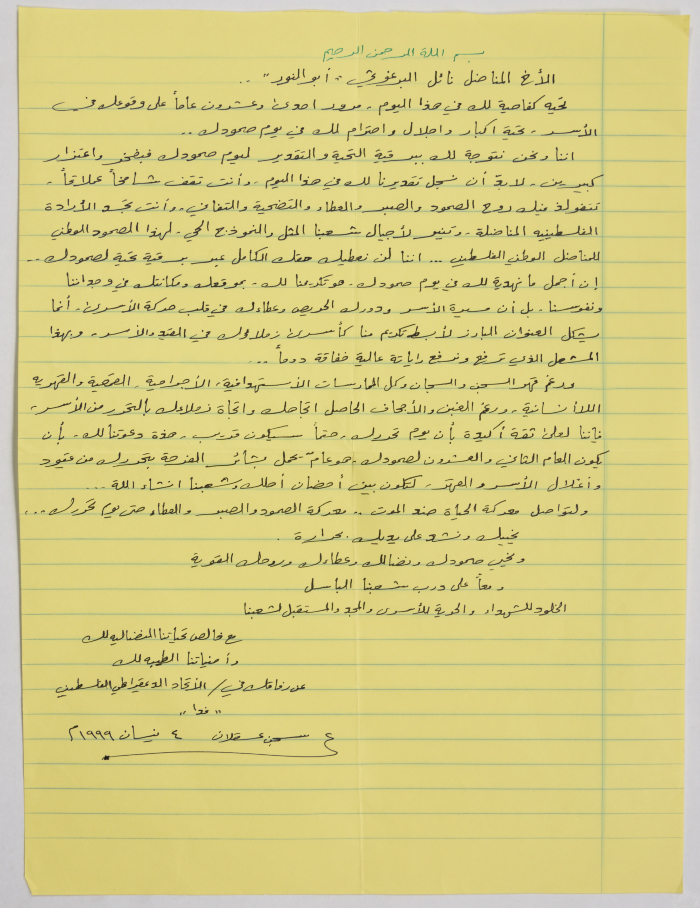 بسم الله الرحمن الرحيم
الأخ المناضل نائل البرغوثي "أبو النور" ..
تحية كفاحية لك في هذا اليوم - مرور احدى وعشرون عاماً على وقوعك في
الأسر - تحية اكبار واجلال واحترام لك في يوم صمودك ..
اننا ونحن نتوجه لك ببرقية التحية والتقدير ليوم صمودك فبفخر واعتزاز
كبيرين - لابد أن نسجل تقديرنا لك في هذا اليوم - وأنت تقف شامخاً عملاقاً -
فيك روح الصمود والصبر والعطاء والتضحية والتفاني - وأنت تجسد الأرادة
الفلسطينية المناضلة - وتنير لأجيال شعبنا المثل والنموذج الحي - لهذا الصمود الوطني
للمناضل الوطني الفلسطيني ... اننا لن نعطيك حقك الكامل عبر برقية تحية لصمودك ..
إن أجمل ما نهديه لك في يوم صمودك - هو تكريمنا لك - بموقعك ومكانتك في وجداننا
ونفوسنا - بل أن مسيرة الأسر ودورك الحريص وعطاءك في قلب حركة الأسرى - أنما
يشكل العنوان البارز لأبسط تكريم منا كأسرى زملاؤك في القيد والأسر - وبهذا
المشعل الذي ترفع ونرفع راياته عالية خفاقة دوماً ...
ورغم قهر السجن والسجان وكل الممارسات الأستهدافية - الأجرامية - القمعية والقهرية
اللاأنسانية - ورغم الغبن والأجحاف الحاصل اتجاهك واتجاه زملاءك بالتحرر من الأسر -
فأننا لعلى ثقة أكيدة بأن يوم تحررك - حتماً سيكون قريب - هذة دعوتنا لك - بأن
يكون العام الثاني والعشرون لصمودك - هو عام يحمل بشائر الفرحة بتحررك من قيود
وأغلال الأسر والقهر - لتكون بين أحضان أهلك وشعبنا انشاء الله ...
ولتواصل معركة الحياة ضد الموت .. معركة الصمود والصبر والعطاء حتى يوم تحررك ...
نحييك ونشد على يديك بحرارة .
ونحيي صمودك ونضالك وعطاءك وروحك القوية
ومعاً على درب شعبنا الباسل
الخلود للشهداء والحرية للأسرى والمجد والمستقبل لشعبنا
مع خالص تحياتنا النضاليه لك
وأمنياتنا الطيبه لك
عن رفاقك في / الأتحاد الديمقراطي الفلسطيني
"فدا"
سجن عسقلان ٤ نيسان ١٩٩٩م